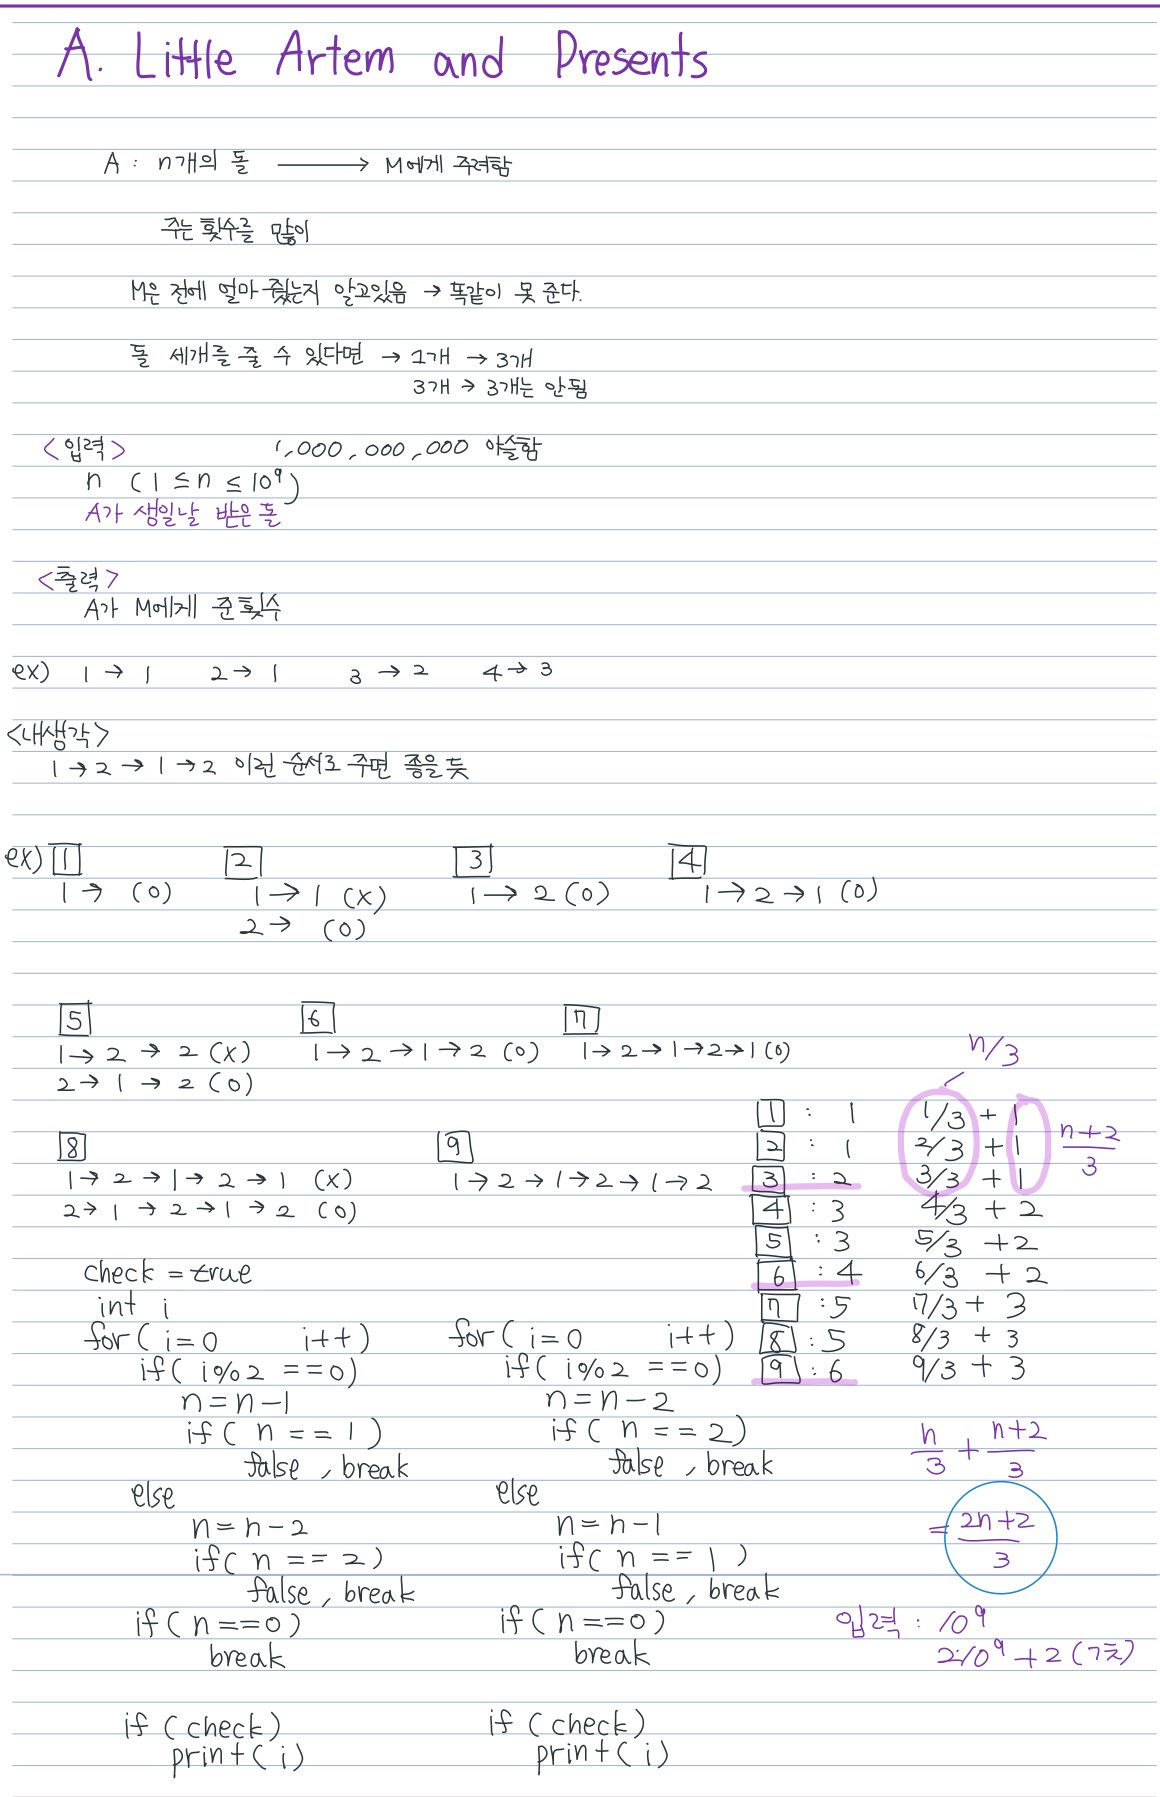 A. Little Artem and Presents
A : n개의 돌 ⟶ M에게 주려함
주는 횟수를 많이
M은 전에 얼마 줬는지 알고있음 → 똑같이 못 준다.
돌 세개를 줄 수 있다면 → 1개 → 3개
3개 → 3개는 안됨
<입력> 1,000,000,000 아슬함
n (1 ≤ n ≤ 10⁹)
A가 생일날 받은 돌
<출력>
A가 M에게 준 횟수
ex) 1 → 1 2 → 1 3 → 2 4 → 3
<내생각>
1 → 2 → 1 → 2 이런 순서로 주면 좋을 듯
ex) 1 2 3 4
1 → (O) 1 → 1 (X) 1 → 2 (O) 1 → 2 → 1 (O)
2 → (O)
5 6 7
1 → 2 → 2 (X) 1 → 2 → 1 → 2 (O) 1 → 2 → 1 → 2 → 1 (O)
2 → 1 → 2 (O)
8 9
1 → 2 → 1 → 2 → 1 (X) 1 → 2 → 1 → 2 → 1 → 2
2 → 1 → 2 → 1 → 2 (O)
n/3
1 : 1 1/3 + 1
2 : 1 2/3 + 1 n+2/3
3 : 2 3/3 + 1
4 : 3 4/3 + 2
5 : 3 5/3 + 2
6 : 4 6/3 + 2
7 : 5 7/3 + 3
8 : 5 8/3 + 3
9 : 6 9/3 + 3
check = true
int i
for( i=0 i++)
if( i%2 ==0)
n=n-1
if( n == 1 )
false , break
else
n=n-2
if( n == 2)
false , break
if( n ==0)
break
if (check)
print( i)
for( i=0 i++)
if( i%2 ==0)
n=n-2
if( n == 2)
false , break
else
n=n-1
if( n == 1 )
false , break
if( n ==0)
break
if (check)
print( i)
n/3 + n+2/3
= 2n+2/3
입력 : 10⁹
2·10⁹ + 2 (가능)